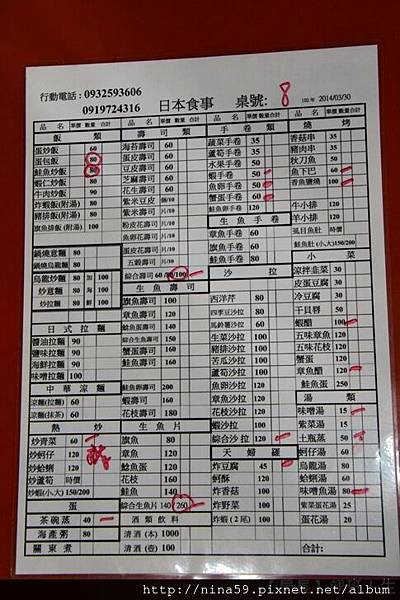 行動電話：0932593606
0919724316
日本食事
桌號：8
102年 2014/03/30
品名 單價 數量 合計
飯類
蛋炒飯 60
蛋包飯 80
鮭魚炒飯 80
蝦仁炒飯 80
牛肉炒飯 90
炸蝦飯(附湯) 80
豬排飯(附湯) 80
旗魚排飯(附湯) 100
鍋燒意麵 80
鍋燒烏龍麵 80
烏龍炒麵 80 加 100
炒意麵 80 海 100
炒拉麵 80 鮮 100
日式拉麵
醬油拉麵 90
鹽味拉麵 90
海鮮拉麵 90
味噌拉麵 100
中華涼麵
涼麵(拉麵) 60
涼麵(抹茶) 60
熱炒
炒青菜 60
炒蚵仔 120
炒蛤蜊 120
炒蘆筍 時價
炒蝦(小大) 150/200
蛋
茶碗蒸 40
海產粥 80
關東煮
壽司類
海苔壽司 60
蛋皮壽司 60
豆皮壽司 60
芝麻壽司 60
花生壽司 60
紫米豆皮 個/10
紫米壽司 片/10
粉皮花壽司 片/10
魚卵花壽司 片/10
蛋皮花壽司 片/10
五穀壽司 片/10
綜合壽司 60/80/100
生魚壽司
旗魚壽司 100
章魚壽司 120
魚卵壽司 120
綜合生魚壽司 150
蟹蛋壽司 120
鮭魚壽司 120
鮭魚卵壽司 200
蝦壽司 160
花枝壽司 180
生魚片
旗魚 80
章魚 120
鮭魚蛋 120
花枝 160
鮭魚 140
綜合生魚片 140 260
酒類飲料
清酒(本) 1000
清酒(壺) 100
手卷類
蔬菜手卷 35
蘆筍手卷 35
水果手卷 50
蝦手卷 50
魚卵手卷 50
蟹蛋手卷 60
鮭魚卵手卷 120
生魚手卷
章魚手卷 60
旗魚手卷 60
鮭魚手卷 60
沙拉
西洋芹 80
四季豆沙拉 80
馬鈴薯沙拉 80
生菜沙拉 100
豬排沙拉 100
苦瓜沙拉 100
蘆筍沙拉 100
魚卵沙拉 120
章魚沙拉 120
花枝沙拉 120
蝦沙拉 100
綜合沙拉 120
天婦羅
炸豆腐 45
蚵酥 120
炸香菇 100
炸野菜 100
炸蝦(2尾) 100
燒烤
香菇串 35
豬肉串 35
秋刀魚 50
魚下巴 60
香魚鹽燒 100
牛小排
羊小排
虱目魚肚 時價
鮭魚肚(小大)150/200
小菜
涼拌韭菜 30
皮蛋豆腐 30
冷豆腐 30
干貝唇 50
蝦醋 100
五味章魚 120
五味花枝 120
蟹蛋 100
章魚醋 120
鮭魚蛋 250
湯類
味噌湯 15
紫菜湯 15
土瓶蒸 50
蚵仔湯 60
烏龍湯 80
蛤蜊湯 60
味噌魚湯 80
紫菜蛋花湯 25
蛋花湯 20
合計：
http://nina59.pixnet.net/album